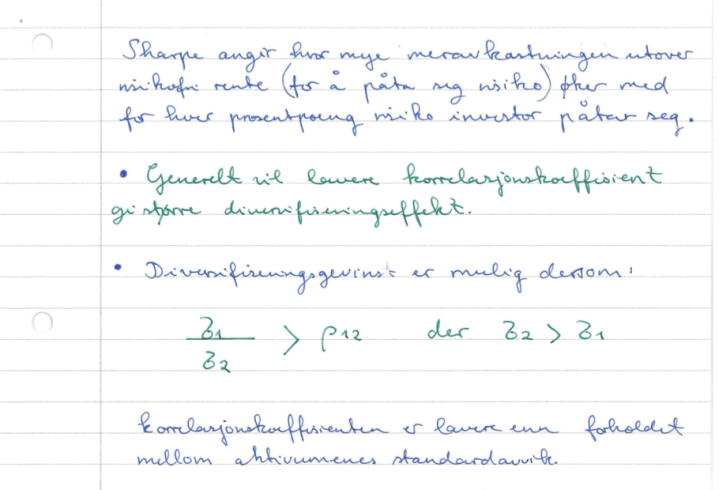 Sharpe angir hvor mye meravkastningen utover
risikofri rente (for å påta seg risiko) øker med
for hver prosentpoeng risiko investor påtar seg.
• Generelt vil lavere korrelasjonskoeffisient
gi større diversifiseringseffekt.
• Diversifiseringsgevinst er mulig dersom:
σ1 / σ2 > ρ12 der σ2 > σ1
korrelasjonskoeffisienten er lavere enn forholdet
mellom aktivumenes standardavvik.